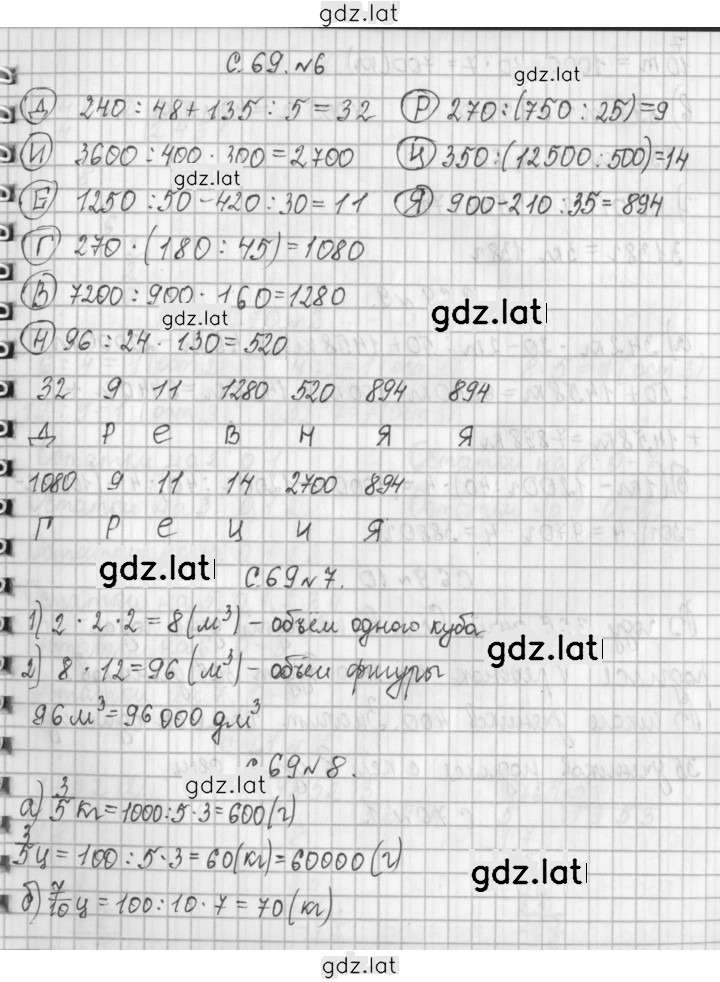 gdz.lat
С. 69. №6
gdz.lat
Д 240 : 48 + 135 : 5 = 32
Р 270 : (750 : 25) = 9
И 3600 : 400 · 300 = 2700
Ц 350 : (12500 : 500) = 14
gdz.lat
Е 1250 : 50 - 420 : 30 = 11
Я 900 - 210 : 35 = 894
Г 270 · (180 : 45) = 1080
В 7200 : 900 · 160 = 1280
gdz.lat
gdz.lat
Н 96 : 24 · 130 = 520
32 9 11 1280 520 894 894
Д Р Е В Н Я Я
1080 9 11 14 2700 894
Г Р Е Ц И Я
gdz.lat
С. 69 №7.
1) 2 · 2 · 2 = 8 (м³) - объём одного куба
gdz.lat
2) 8 · 12 = 96 (м³) - объём фигуры
96 м³ = 96 000 дм³
С. 69 №8.
gdz.lat
а) 3/5 кг = 1000 : 5 · 3 = 600 (г)
3/5 ц = 100 : 5 · 3 = 60 (кг) = 60000 (г)
gdz.lat
б) 7/10 ц = 100 : 10 · 7 = 70 (кг)
gdz.lat